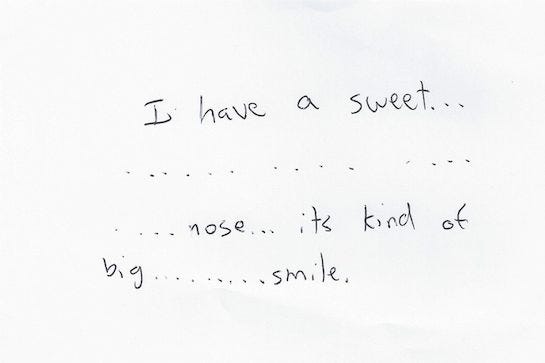 I have a sweet...
. . . . . .   . . . .   . . . .
. . . . nose... its kind of
big.........smile.